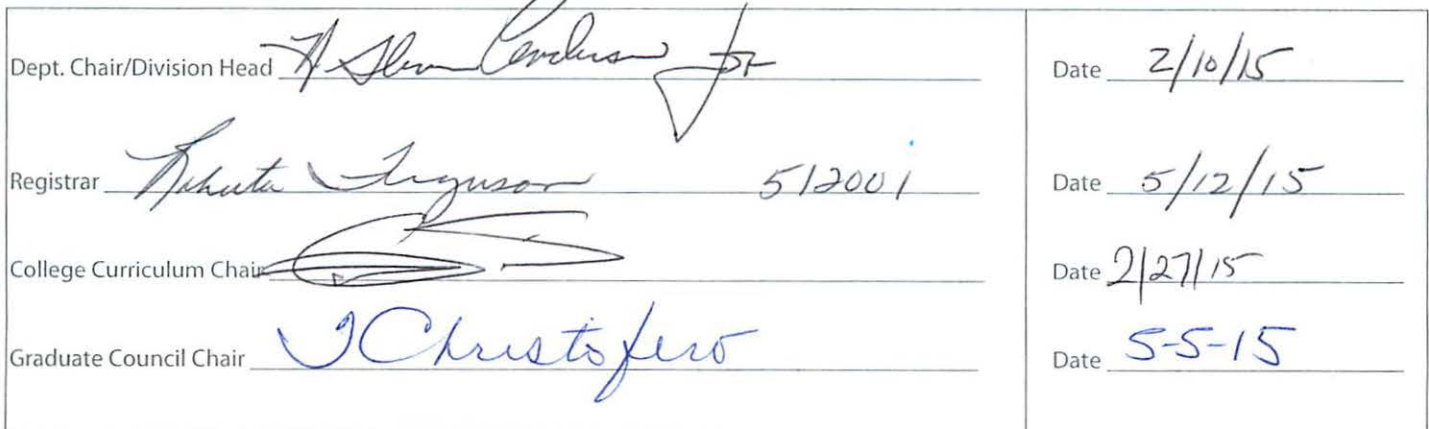 Dept. Chair/Division Head Jr Date 2/10/15
Registrar Roberta Ferguson 512001 Date 5/12/15
College Curriculum Chair Date 2/27/15
Graduate Council Chair T Christofero Date 5-5-15